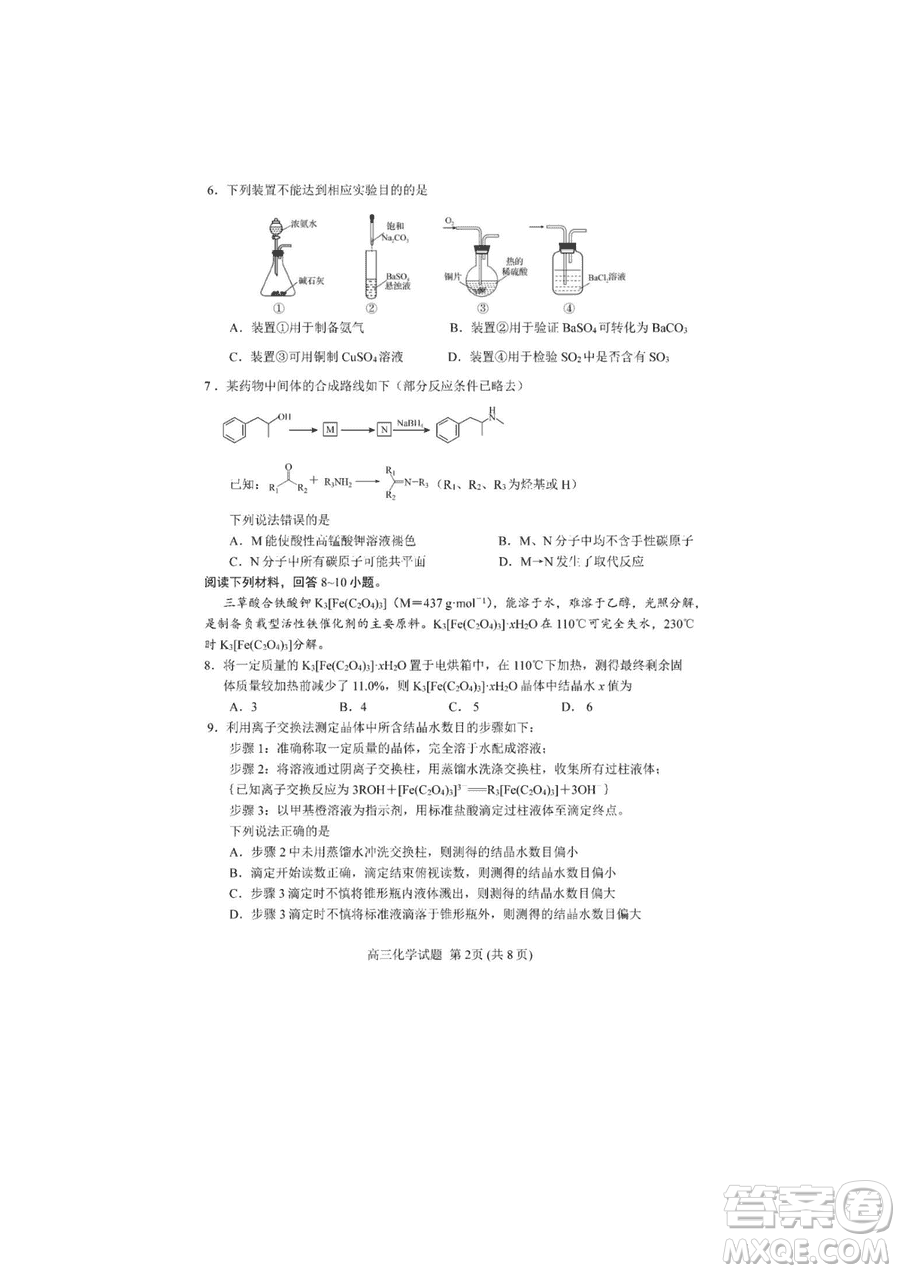 6．下列装置不能达到相应实验目的的是
浓氨水
碱石灰
①
饱和
Na2CO3
BaSO4
悬浊液
②
O2
铜片
热的
稀硫酸
③
BaCl2溶液
④
A．装置①用于制备氨气 B．装置②用于验证 BaSO4 可转化为 BaCO3
C．装置③可用铜制 CuSO4 溶液 D．装置④用于检验 SO2 中是否含有 SO3
7．某药物中间体的合成路线如下（部分反应条件已略去）
OH M N NaBH4 H N
已知： O R1 R2 + R3NH2 R1 R2 =N−R3（R1、R2、R3 为烃基或 H）
下列说法错误的是
A．M 能使酸性高锰酸钾溶液褪色 B．M、N 分子中均不含手性碳原子
C．N 分子中所有碳原子可能共平面 D．M→N 发生了取代反应
阅读下列材料，回答 8~10 小题。
三草酸合铁酸钾 K3[Fe(C2O4)3]（M＝437 g·mol−1），能溶于水，难溶于乙醇，光照分解，
是制备负载型活性铁催化剂的主要原料。K3[Fe(C2O4)3]·xH2O 在 110℃可完全失水，230℃
时 K3[Fe(C2O4)3]分解。
8．将一定质量的 K3[Fe(C2O4)3]·xH2O 置于电烘箱中，在 110℃下加热，测得最终剩余固
体质量较加热前减少了 11.0%，则 K3[Fe(C2O4)3]·xH2O 晶体中结晶水 x 值为
A．3 B．4 C．5 D．6
9．利用离子交换法测定晶体中所含结晶水数目的步骤如下：
步骤 1：准确称取一定质量的晶体，完全溶于水配成溶液；
步骤 2：将溶液通过阴离子交换柱，用蒸馏水洗涤交换柱，收集所有过柱液体；
{已知离子交换反应为 3ROH＋[Fe(C2O4)3]3−══R3[Fe(C2O4)3]＋3OH−}
步骤 3：以甲基橙溶液为指示剂，用标准盐酸滴定过柱液体至滴定终点。
下列说法正确的是
A．步骤 2 中未用蒸馏水冲洗交换柱，则测得的结晶水数目偏小
B．滴定开始读数正确，滴定结束俯视读数，则测得的结晶水数目偏小
C．步骤 3 滴定时不慎将锥形瓶内液体溅出，则测得的结晶水数目偏大
D．步骤 3 滴定时不慎将标准液滴落于锥形瓶外，则测得的结晶水数目偏大
高三化学试题 第 2页 (共 8 页)
答案卷
MXQE.COM